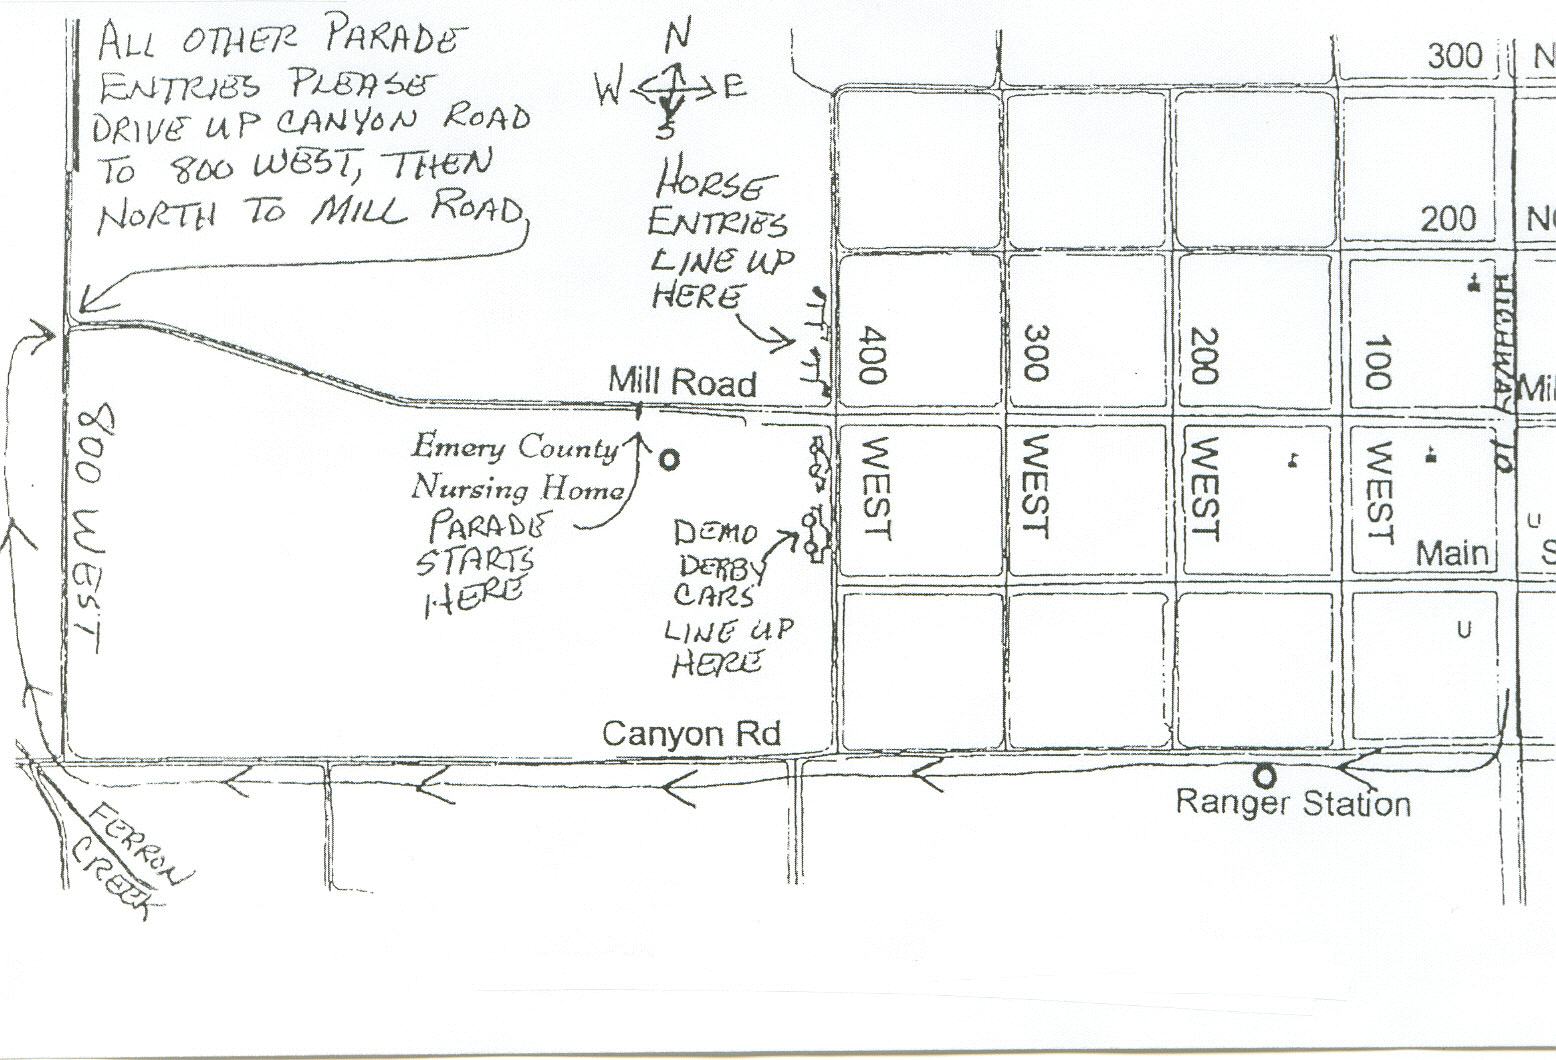 ALL OTHER PARADE
ENTRIES PLEASE
DRIVE UP CANYON ROAD
TO 800 WEST, THEN
NORTH TO MILL ROAD
N
W E
S
HORSE
ENTRIES
LINE UP
HERE
300 N
200 NO
HIGHWAY 10
400 WEST
300 WEST
200 WEST
100 WEST
Mill Road
Mil
Emery County
Nursing Home
PARADE
STARTS
HERE
DEMO
DERBY
CARS
LINE UP
HERE
800 WEST
Main S
U
U
Canyon Rd
Ranger Station
FERRON
CREEK